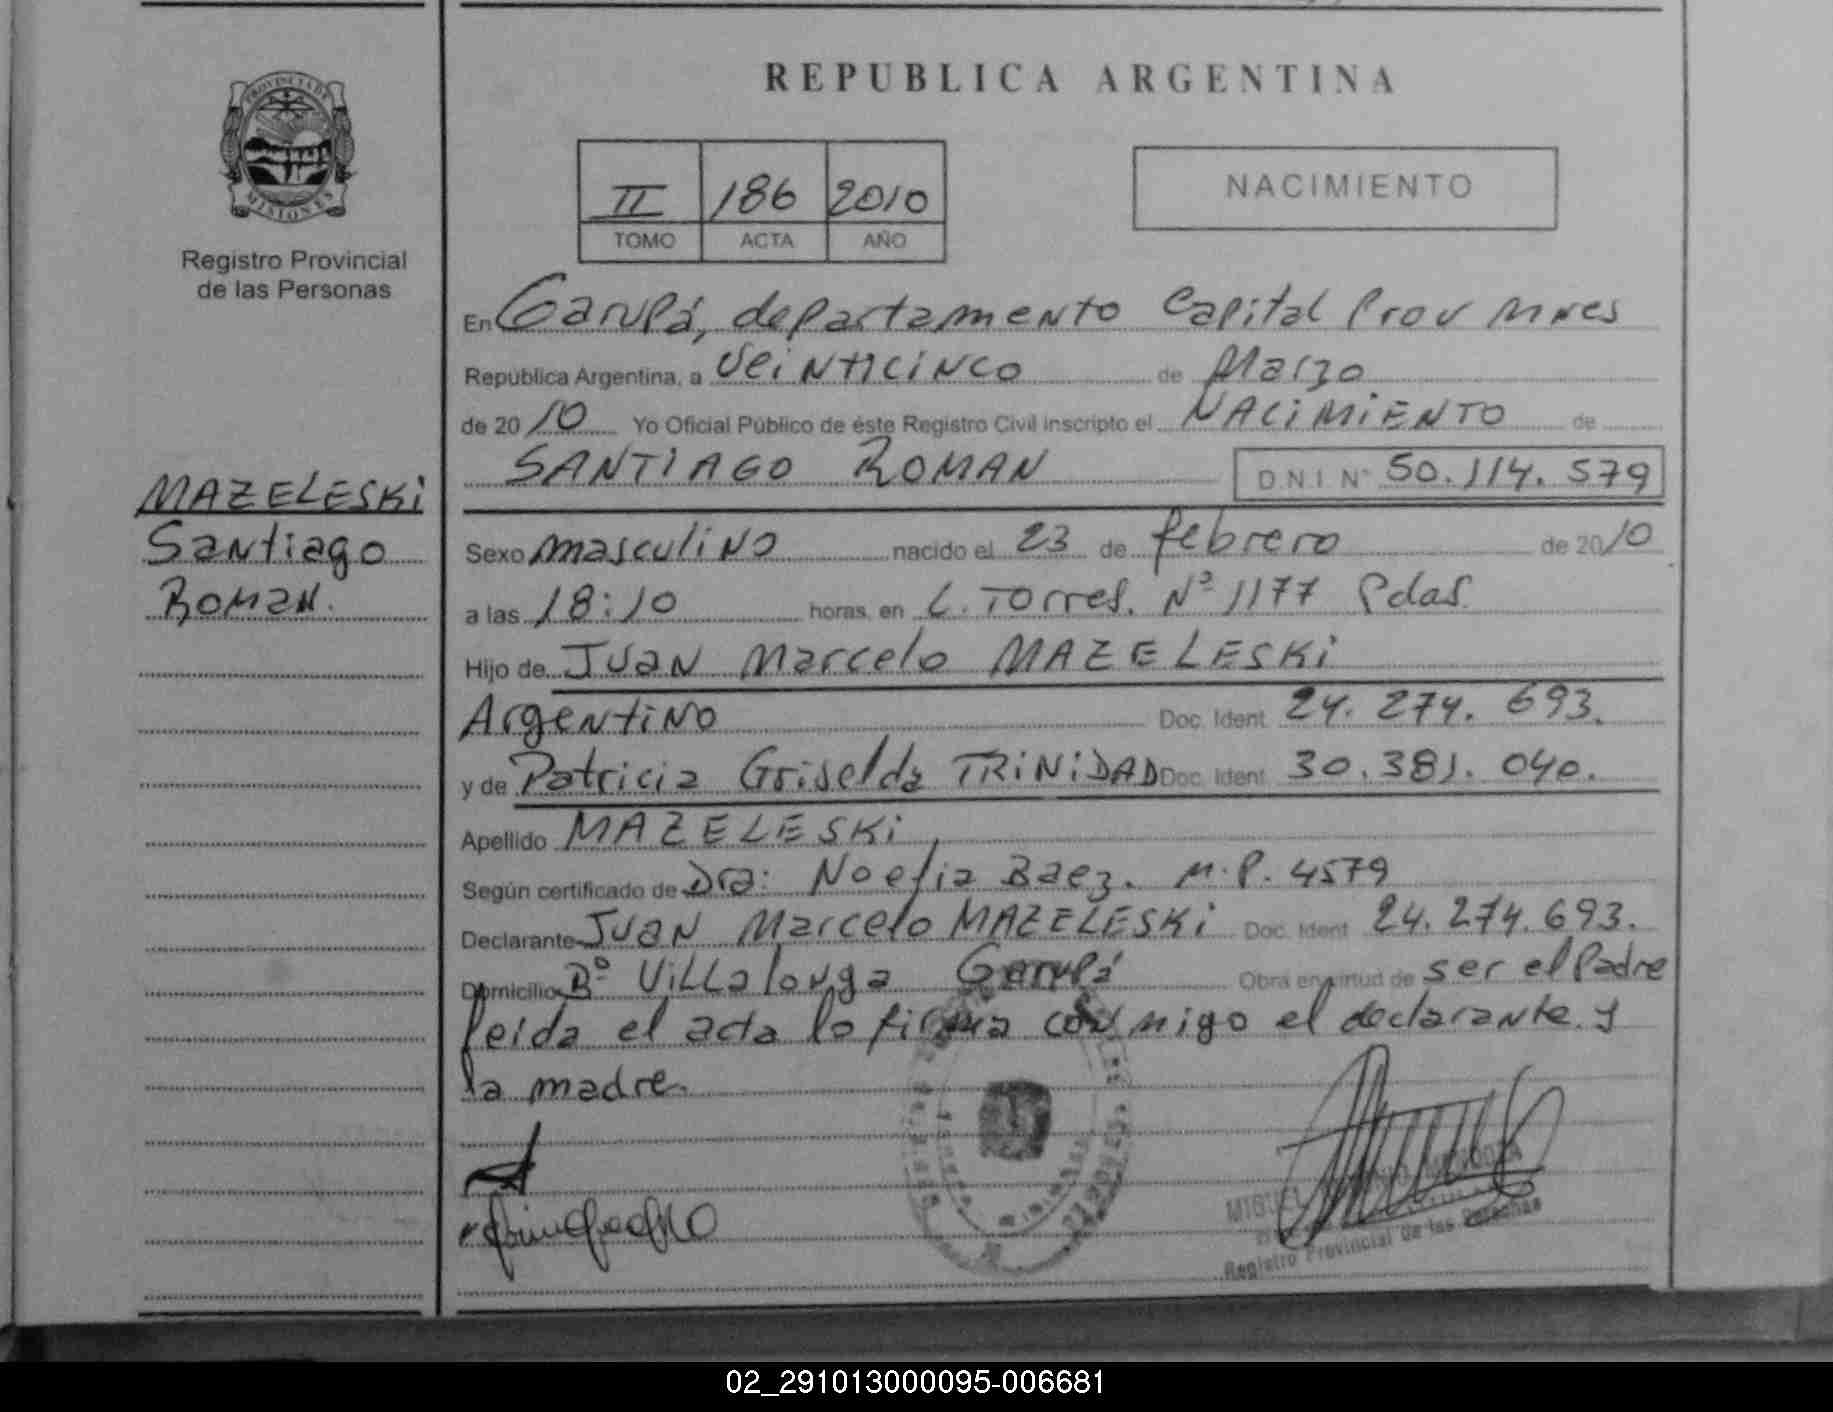 REPUBLICA ARGENTINA
PROVINCIA DE
MISIONES
Registro Provincial
de las Personas
II 186 2010
TOMO ACTA AÑO
NACIMIENTO
En Garupá, departamento Capital Prov Mnes
República Argentina, a veinticinco de Marzo
de 2010 Yo Oficial Público de éste Registro Civil inscripto el NACIMIENTO de
SANTIAGO ROMAN D.N.I. N° 50.114.579
MAZELESKI
Santiago
Roman.
Sexo masculino nacido el 23 de febrero de 2010
a las 18:10 horas, en L. Torres. N° 1177 Pdas.
Hijo de Juan Marcelo MAZELESKI
Argentino Doc. Ident. 24.274.693.
y de Patricia Griselda TRINIDAD Doc. Ident. 30.381.040.
Apellido MAZELESKI
Según certificado de Dra: Noelia Baez. M.P. 4579
Declarante Juan Marcelo MAZELESKI Doc. Ident. 24.274.693.
Domicilio B° Villalonga Garupá Obra en virtud de ser el Padre
leida el acta lo firma conmigo el declarante y
la madre.
MIGUEL MENDOZA
Registro Provincial De las Personas
02_291013000095-006681